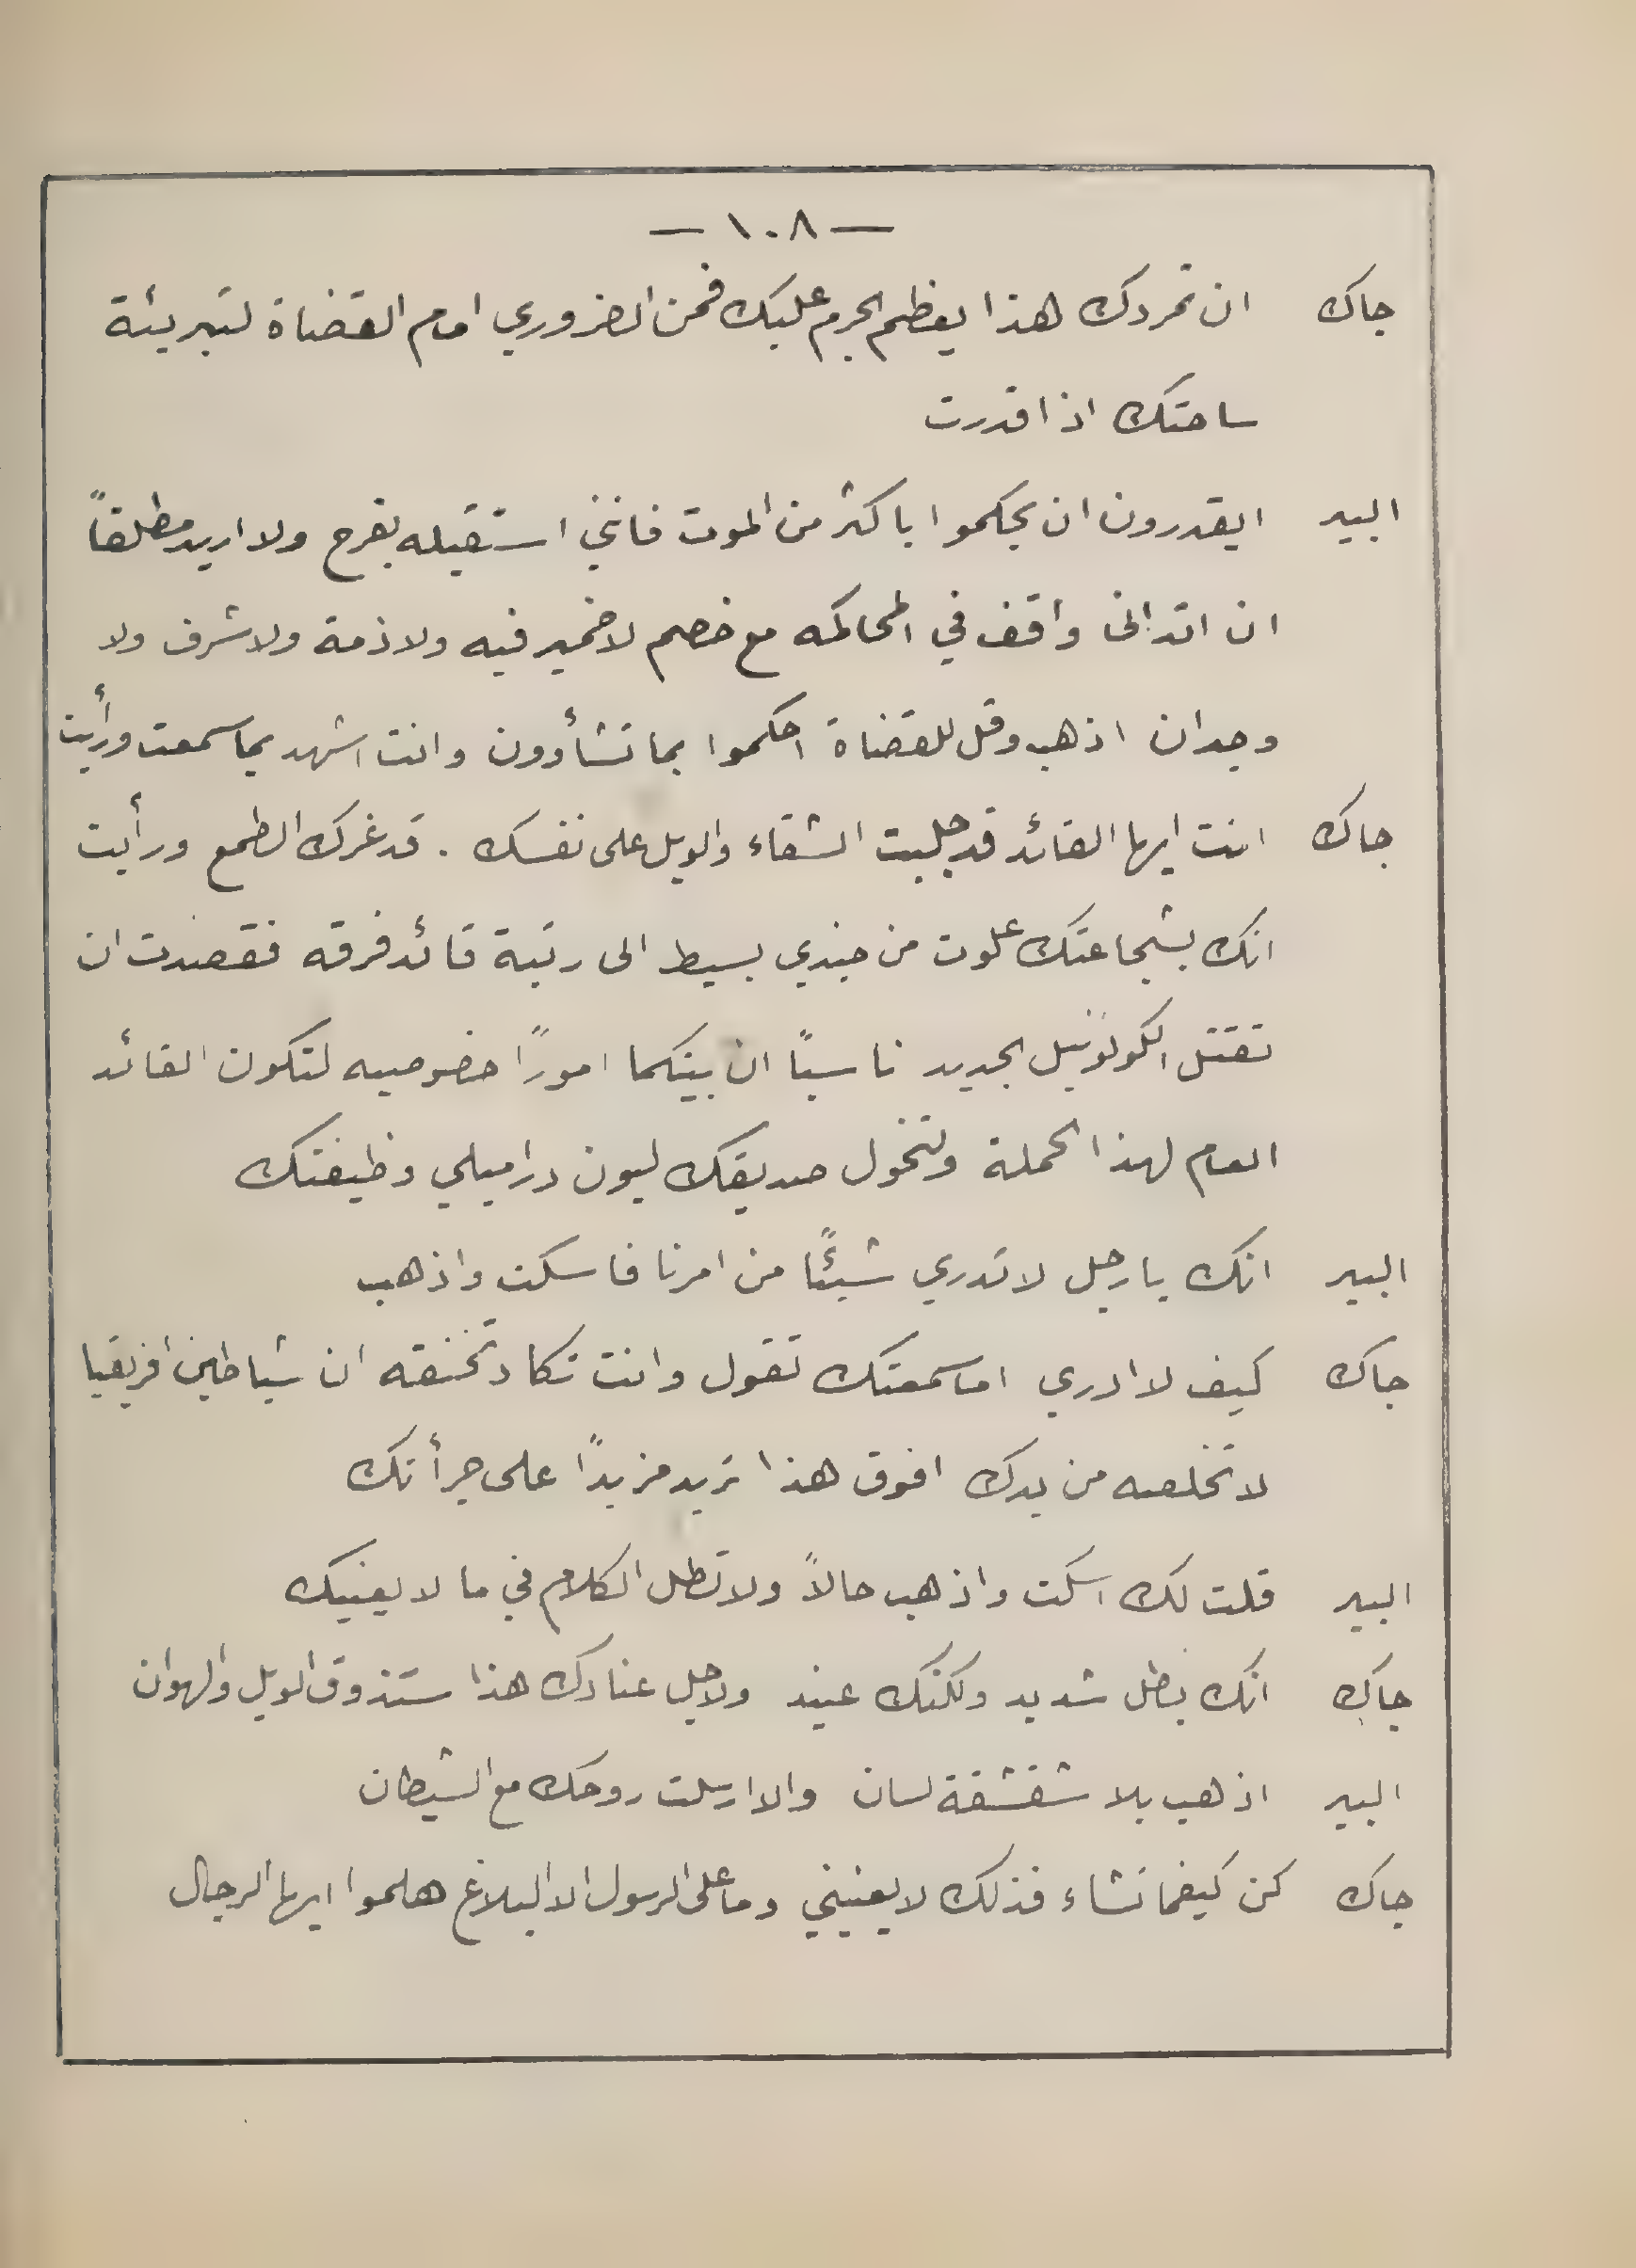 — ١٠٨ —
جاك ان تمردك هذا يعظم الجرم عليك فمن الضروري امام القضاة لتبرئة
ساحتك اذا قدرت
البير ايقدرون ان يحكموا باكثر من الموت فانني استقبله بفرح ولا اريد مطلقاً
ان اتدانى واقف في المحاكمه مع خصم لا ضمير فيه ولا ذمة ولا شرف ولا
وجدان اذهب وقل للقضاة احكموا بما تشأوون وانت اشهد بما سمعت ورأيت
جاك انت ايها القائد قد جلبت الشقاء والويل على نفسك . قد غرك الطمع ورأيت
انك بشجاعتك علوت من جندي بسيط الى رتبة قائد فرقه فقصدت ان
تقتل الكولونيل الجديد ناسياً ان بينكما اموراً خصوصيه لتكون القائد
العام لهذا الحملة ولتخول صديقك ليون دراميلي وظيفتك
البير انك يا رجل لا تدري شيئًا من امرنا فاسكت واذهب
جاك كيف لا ادري اما سمعتك تقول وانت تكاد تخنقه ان شياطين افريقيا
لا تخلصه من يدك افوق هذا تريد مزيداً على جرأتك
البير قلت لك اسكت واذهب حالاً ولا تطل الكلام في ما لا يعنيك
جاك انك بطل شديد ولكنك عنيد ولاجل عنادك هذا ستذوق الويل والهوان
البير اذهب بلا شقشقة لسان والا ارسلت روحك مع الشيطان
جاك كن كيفما تشاء فذلك لا يعنيني وما على الرسول الا البلاغ هلموا ايها الرجال